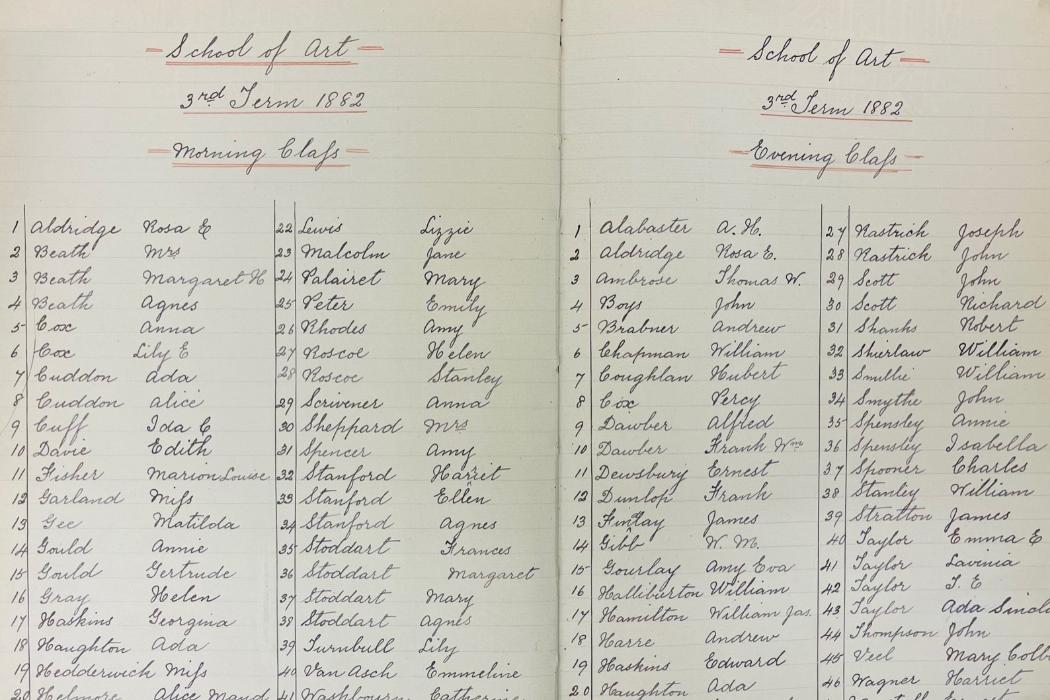 School of Art
3rd Term 1882
Morning Class
1 Aldridge Rosa E
2 Beath Mrs
3 Beath Margaret H
4 Beath Agnes
5 Cox Anna
6 Cox Lily E
7 Cuddon Ada
8 Cuddon Alice
9 Cuff Ida C
10 Davie Edith
11 Fisher Marion Louise
12 Garland Miss
13 Gee Matilda
14 Gould Annie
15 Gould Gertrude
16 Gray Helen
17 Haskins Georgina
18 Haughton Ada
19 Hedderwick Miss
20 Helmore Alice Maud
22 Lewis Lizzie
23 Malcolm Jane
24 Palairet Mary
25 Peter Emily
26 Rhodes Amy
27 Roscoe Helen
28 Roscoe Stanley
29 Scrivener Anna
30 Sheppard Mrs
31 Spencer Amy
32 Stanford Harriet
33 Stanford Ellen
34 Stanford Agnes
35 Stoddart Frances
36 Stoddart Margaret
37 Stoddart Mary
38 Stoddart Agnes
39 Turnbull Lily
40 Van Asch Emmeline
41 Washbourn Catherine
School of Art
3rd Term 1882
Evening Class
1 Alabaster A. H.
2 Aldridge Rosa E.
3 Ambrose Thomas W.
4 Boys John
5 Brabner Andrew
6 Chapman William
7 Coughlan Hubert
8 Cox Percy
9 Dawber Alfred
10 Dawber Frank Wm
11 Dewsbury Ernest
12 Dunlop Frank
13 Finlay James
14 Gibb W. M.
15 Gourlay Amy Eva
16 Halliburton William
17 Hamilton William Jas.
18 Harre Andrew
19 Haskins Edward
20 Haughton Ada
27 Rastrich Joseph
28 Rastrich John
29 Scott John
30 Scott Richard
31 Shanks Robert
32 Shierlaw William
33 Smillie William
34 Smythe John
35 Spensley Annie
36 Spensley Isabella
37 Spooner Charles
38 Stanley William
39 Stratton James
40 Taylor Emma E
41 Taylor Lavinia
42 Taylor T. E
43 Taylor Ada Sincl
44 Thompson John
45 Veel Mary Colb
46 Wagner Harriet